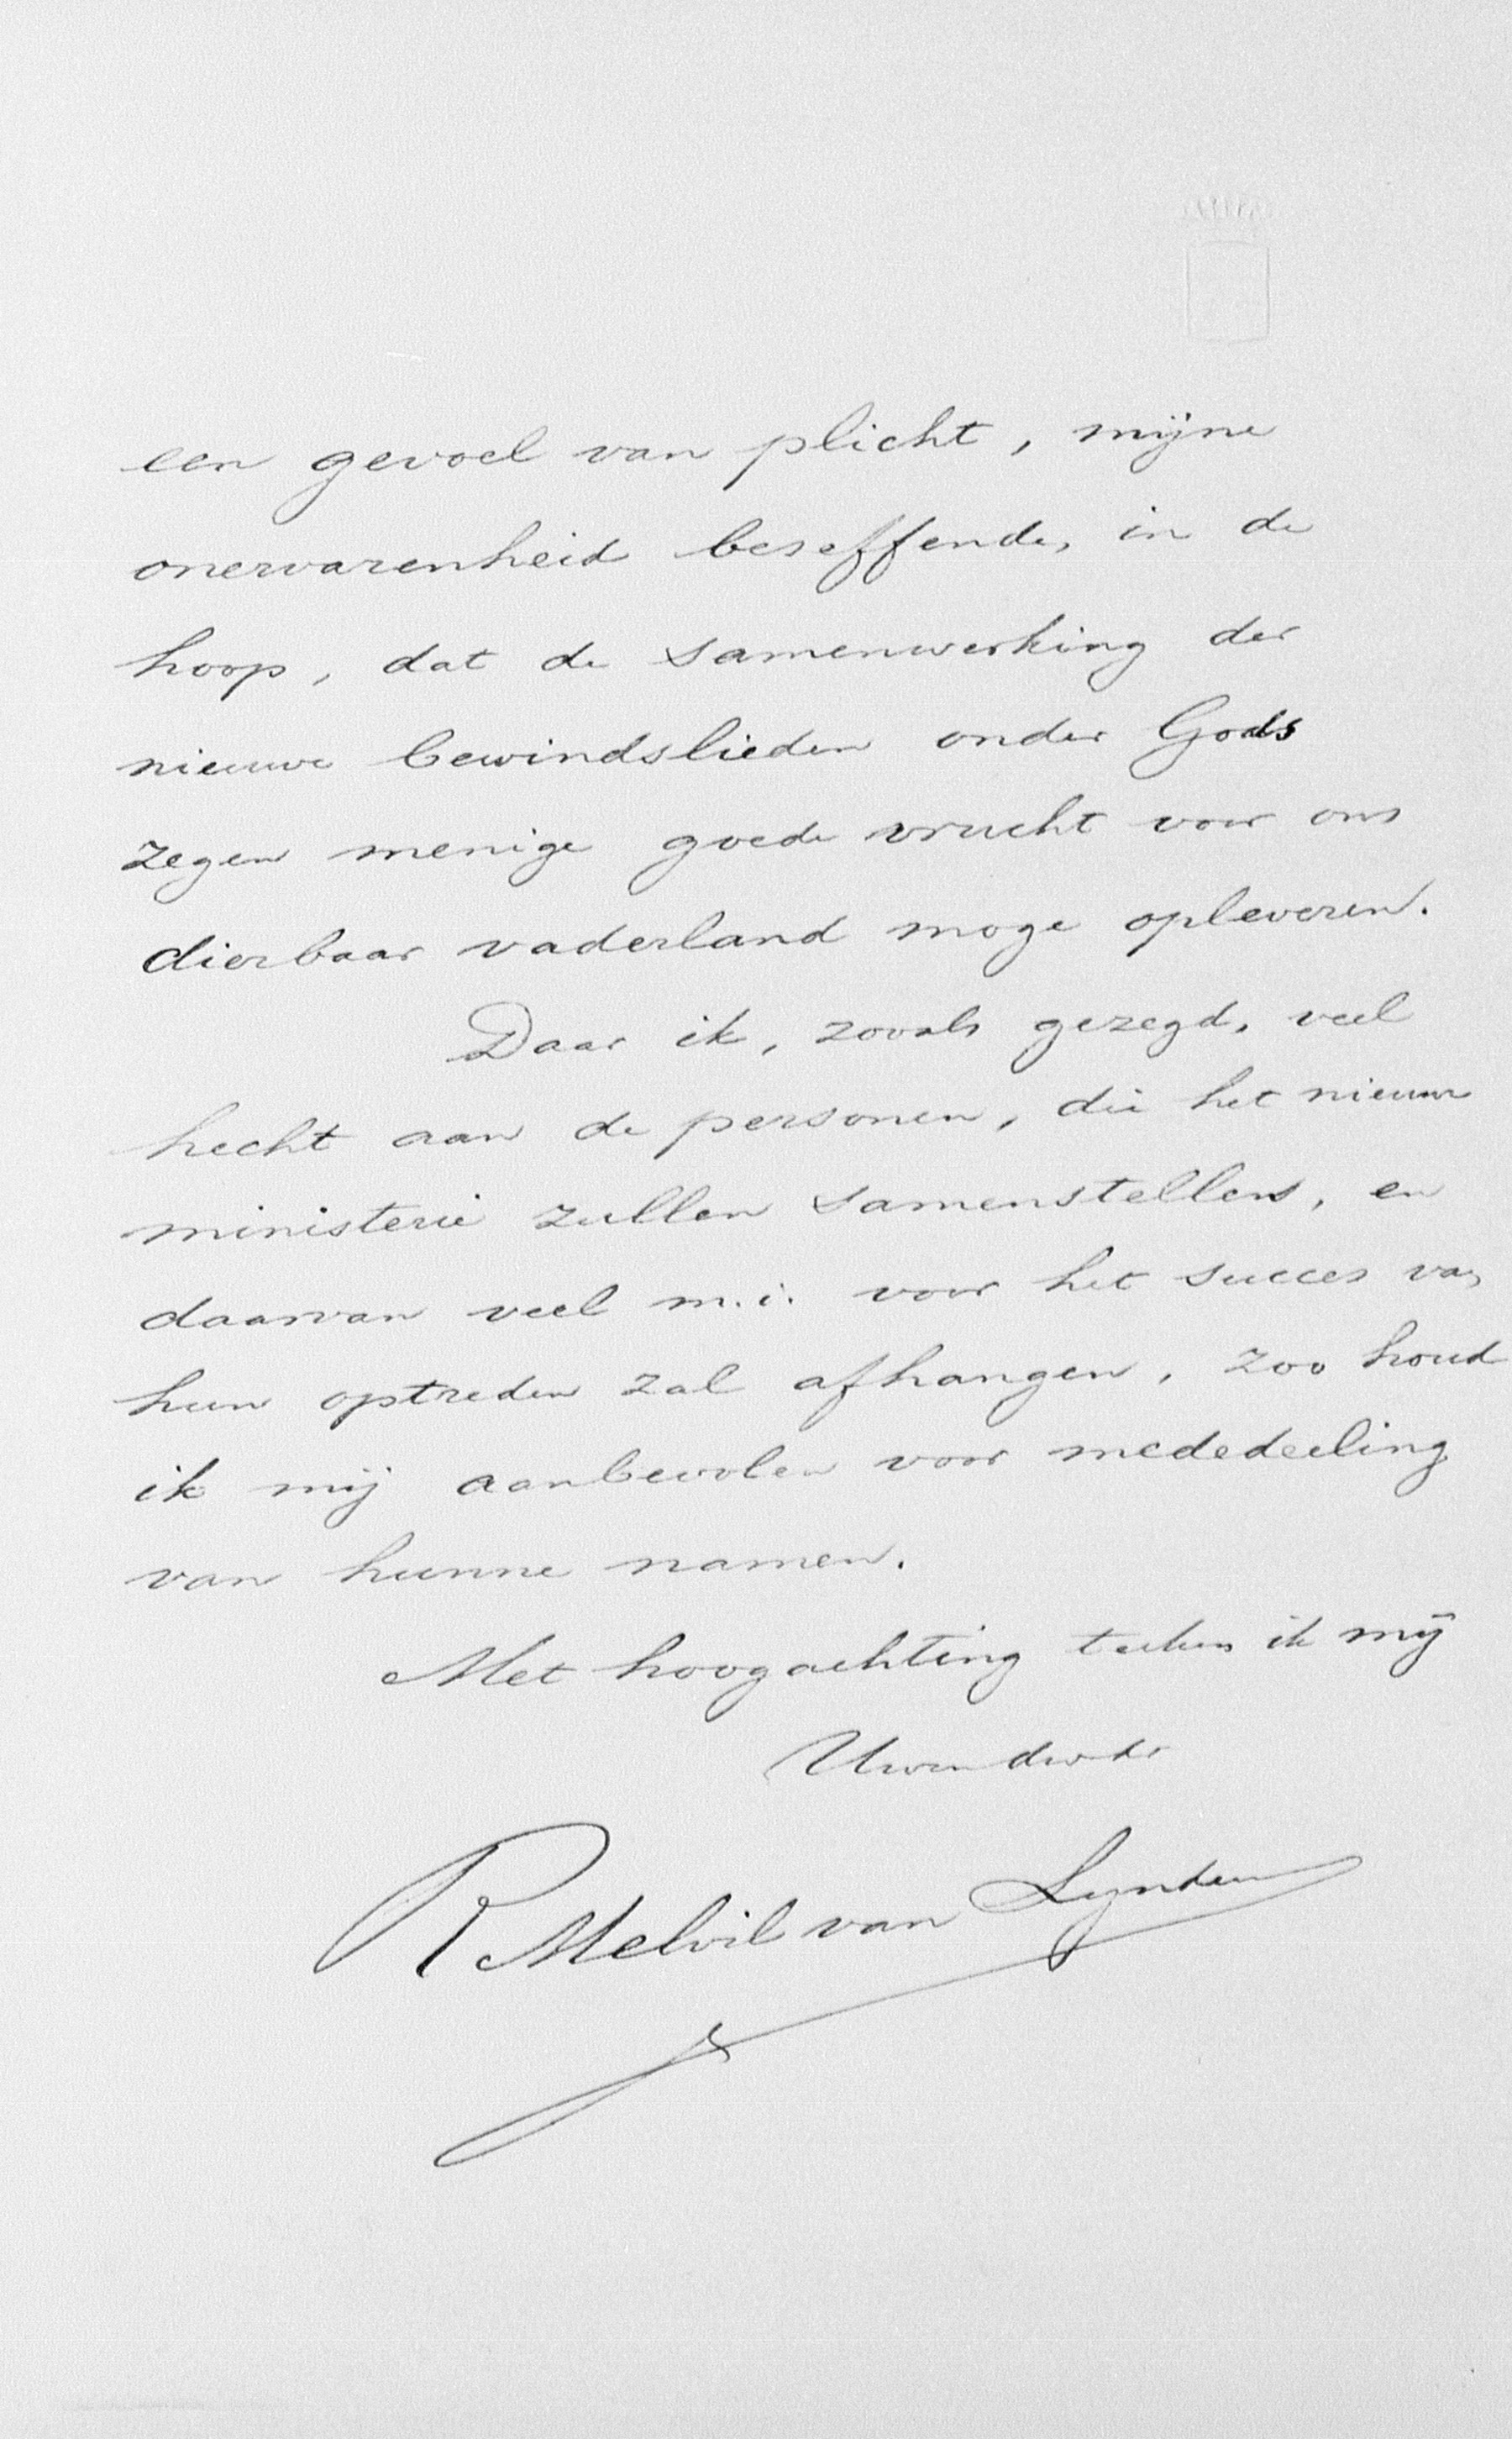 een gevoel van plicht, mijne
onervarenheid beseffende, in de
hoop, dat de samenwerking der
nieuwe bewindslieden onder Gods
zegen menige goede vrucht voor ons
dierbaar vaderland moge opleveren.
Daar ik, zooals gezegd, veel
hecht aan de personen, die het nieuwe
ministerie zullen samenstellen, en
daarvan veel m.i. voor het succes van
hun optreden zal afhangen, zoo houd
ik mij aanbevolen voor mededeeling
van hunne namen.
Met hoogachting teeken ik mij
R Melvil van Lynden